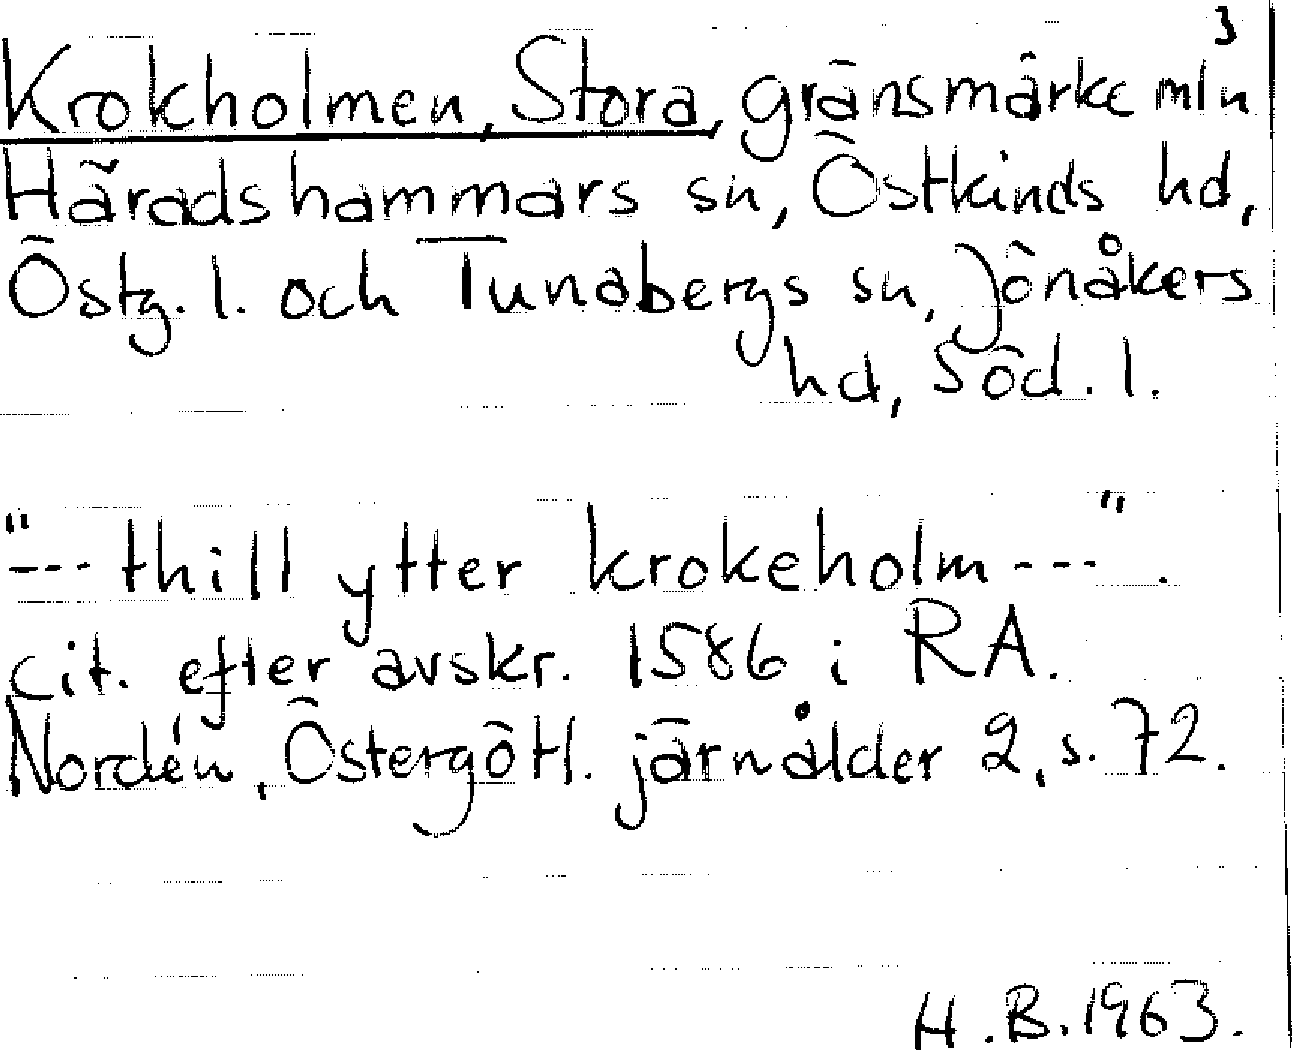 3
Krokholmen, Stora, gränsmärke mln
Häradshammars sn, Östkinds hd,
Östg. l. och Tunabergs sn, Jönåkers
hd, Söd. l.
"--- thill ytter krokeholm ---".
cit. efter avskr. 1586 i RA.
Nordén, Östergötl. järnålder 2, s. 72.
H.B. 1963.